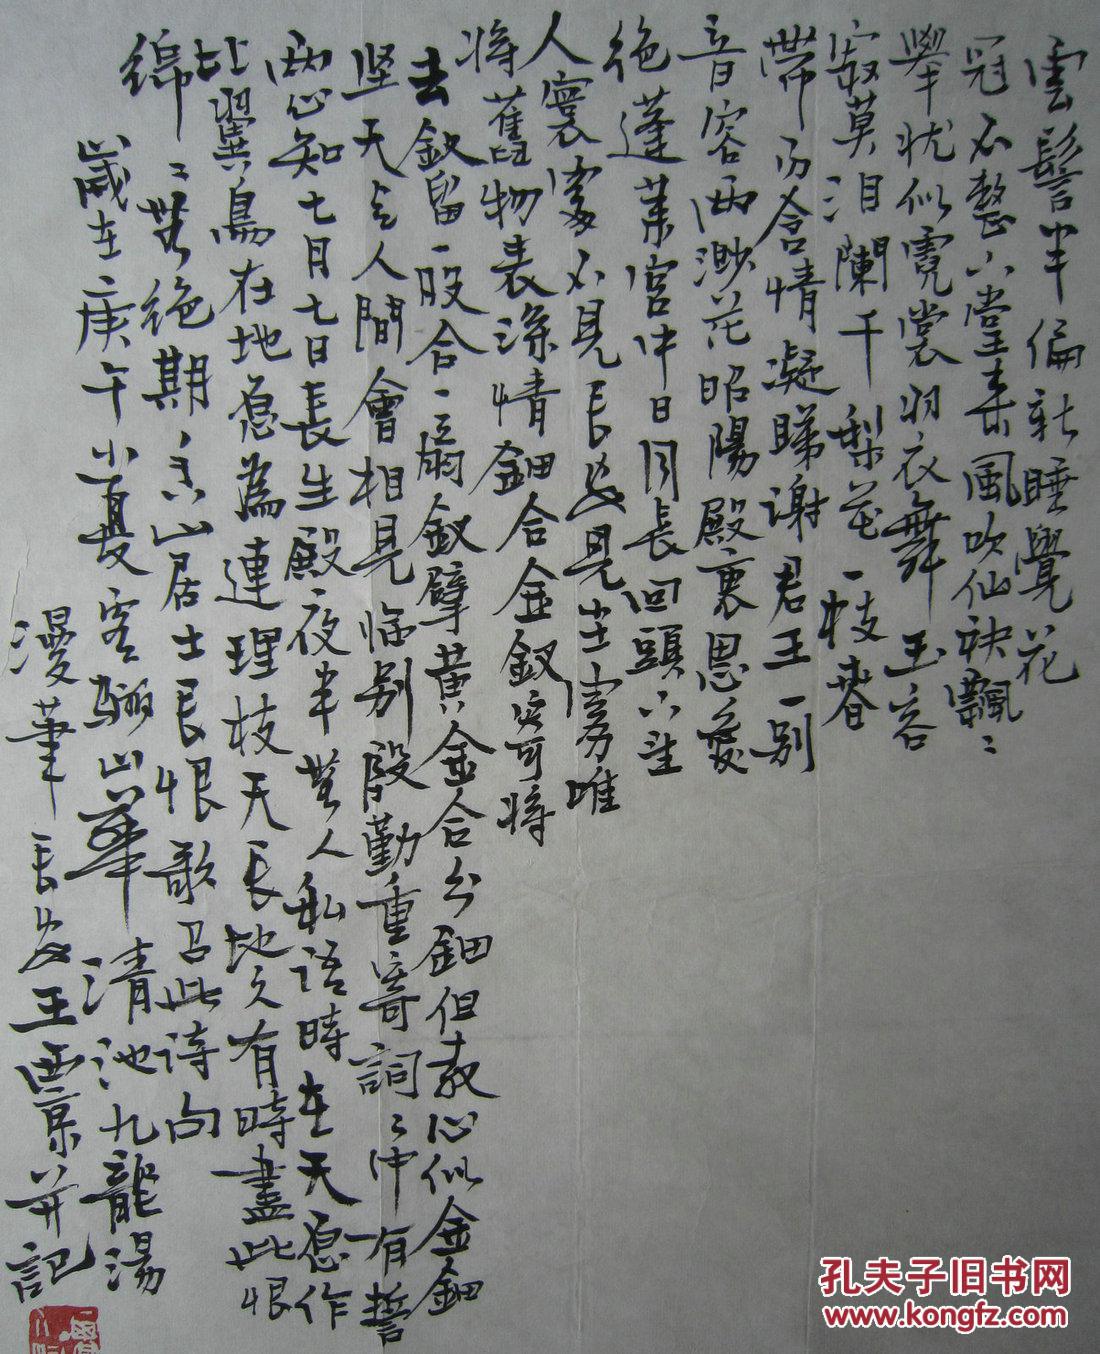 雲髻半偏新睡覺花
冠不整下堂來風吹仙袂飄〻
舉猶似霓裳羽衣舞玉容
寂莫泪闌干梨花一枝春
帶雨含情凝睇謝君王一别
音容兩渺茫昭陽殿裏恩愛
绝蓬萊宮中日月長回頭下望
人寰處不見長安見尘霧唯
将舊物表深情鈿合金釵寄将
去釵留一股合一扇釵擘黄金合分鈿但教心似金鈿
坚天上人間會相見临别殷勤重寄詞〻中有誓
兩心知七月七日長生殿夜半無人私语時在天愿作
比翼鳥在地愿為連理枝天長地久有時盡此恨
綿〻無绝期香山居士長恨歌召此诗句
歲在庚午小夏客驪山華清池九龍湯
漫筆長安王票并記
孔夫子旧书网
www.kongfz.com